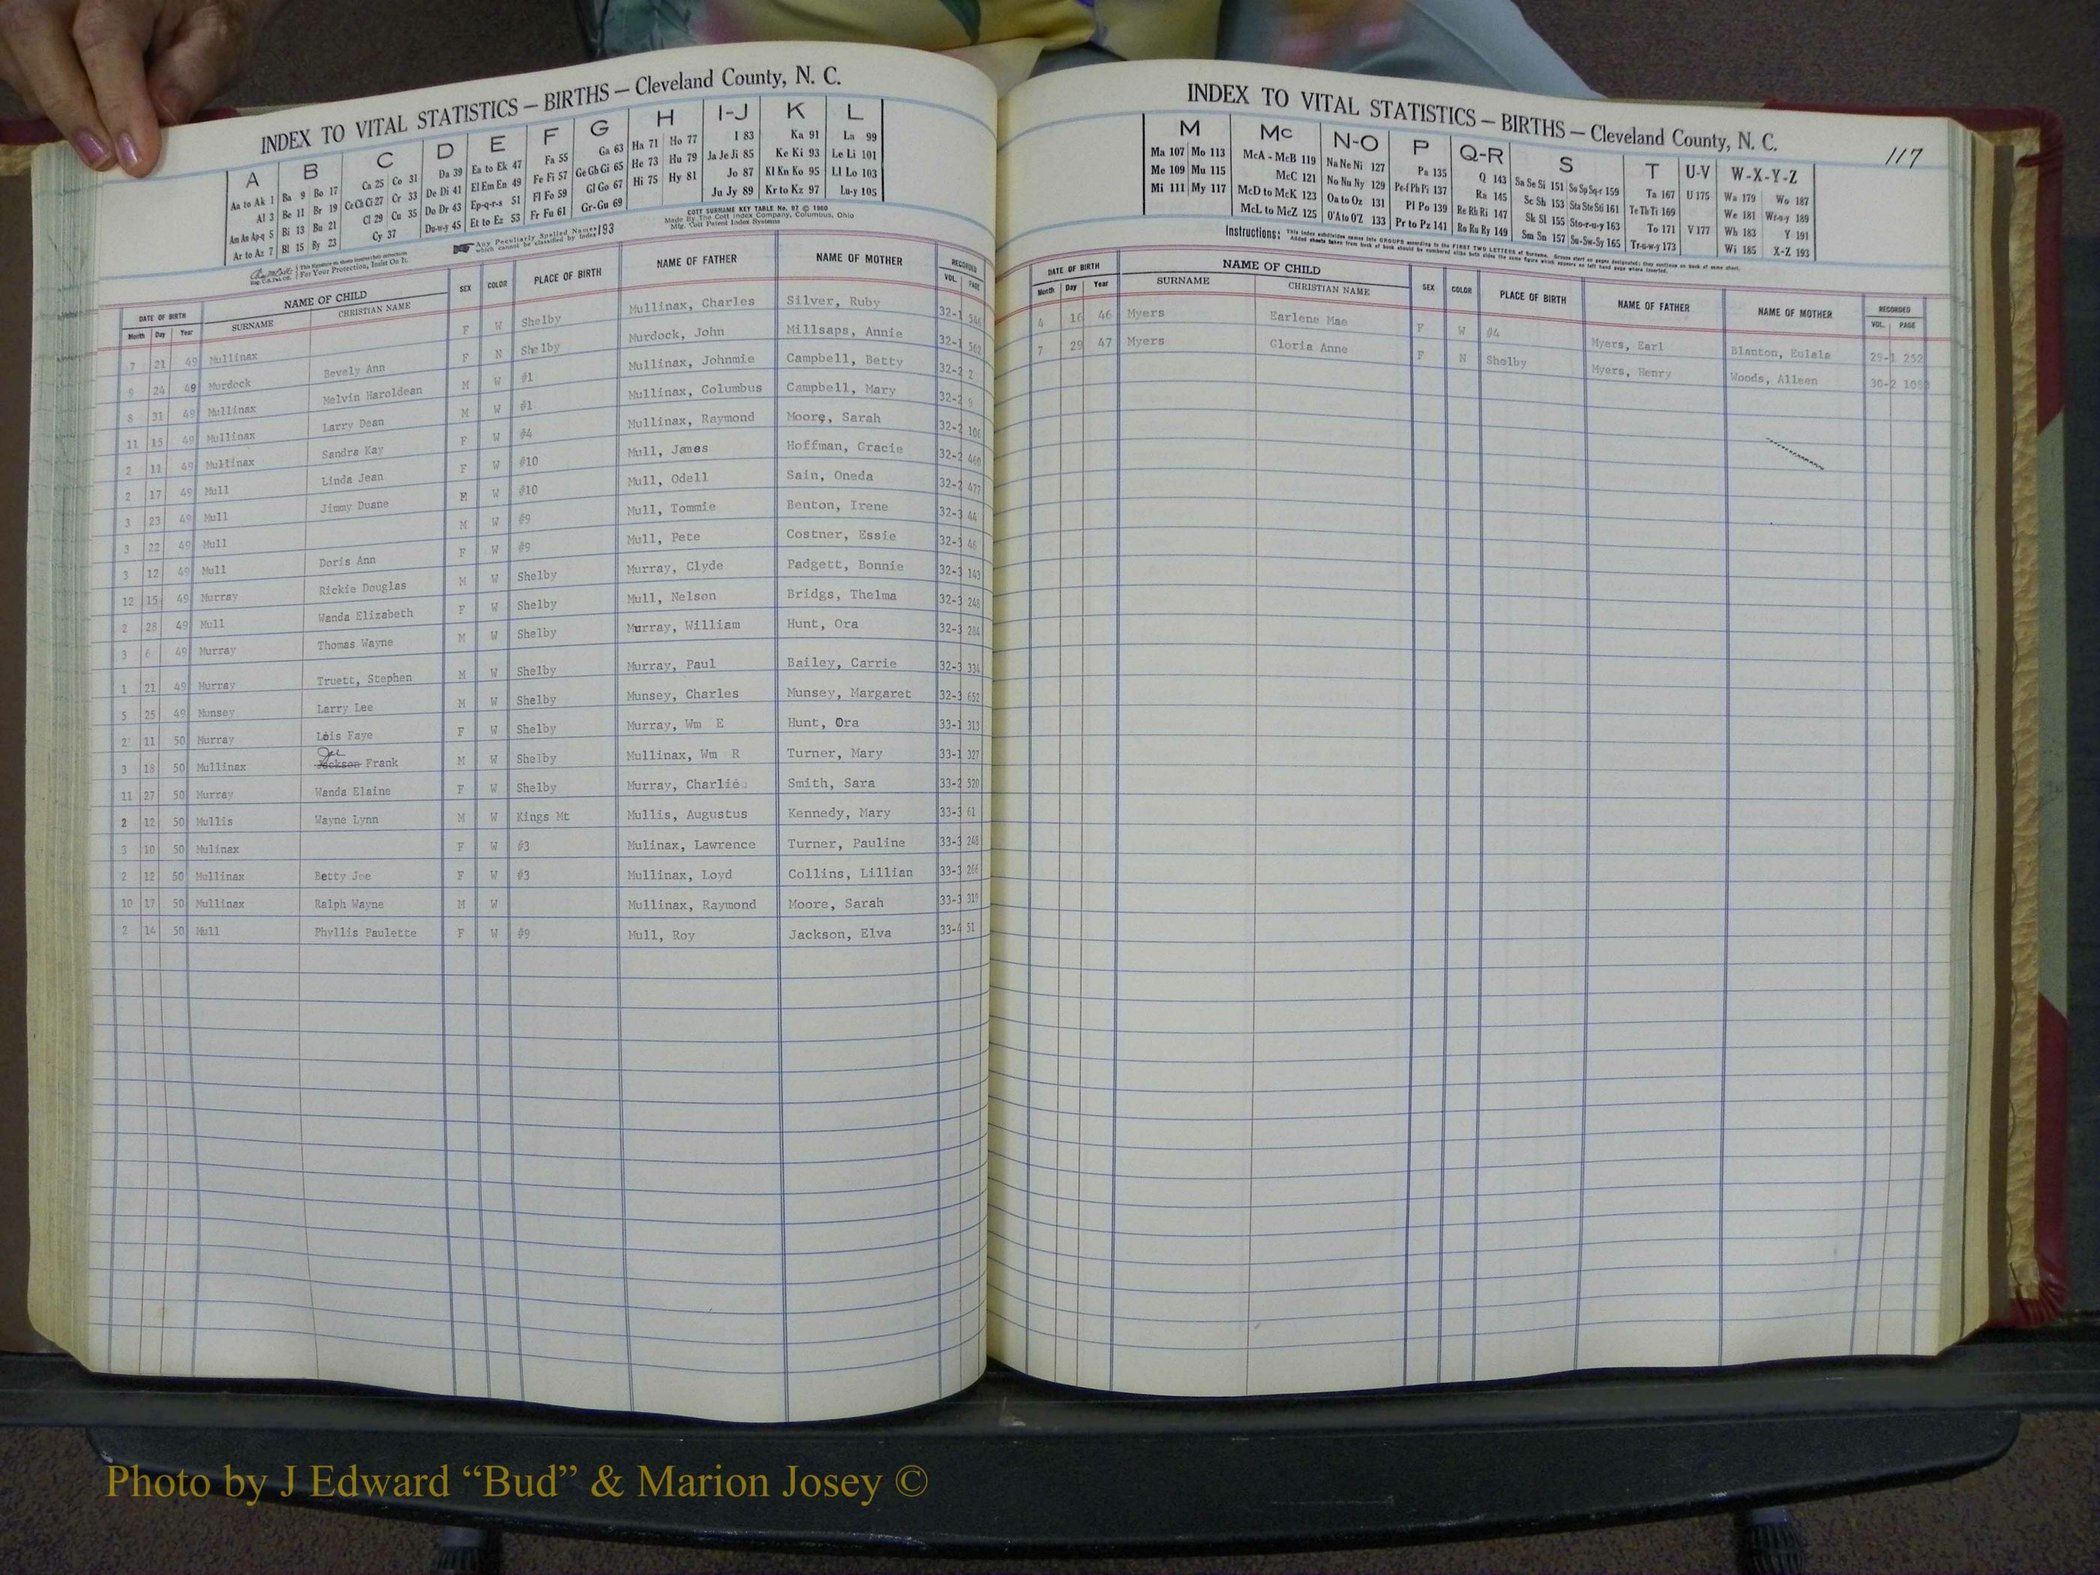 INDEX TO VITAL STATISTICS — BIRTHS — Cleveland County, N. C.
A B C D E F G H I-J K L
Aa to Ak 1 Ba 9 Bo 17 Ca 25 Co 31 Da 39 Ea to Ek 47 Fa 55 Ga 63 Ha 71 Ho 77 I 83 Ka 91 La 99
Al 3 Be 11 Br 19 Ce Ch Ci 27 Cr 33 De Di 41 El Em En 49 Fe Fi 57 Ge Gh Gi 65 He 73 Hu 79 Ja Je Ji 85 Ke Ki 93 Le Li 101
Am An Ap-q 5 Bi 13 Bu 21 Cl 29 Cu 35 Do Dr 43 Ep-q-r-s 51 Fl Fo 59 Gl Go 67 Hi 75 Hy 81 Jo 87 Kl Kn Ko 95 Ll Lo 103
Ar to Az 7 Bl 15 By 23 Cy 37 Du-w-y 45 Et to Ez 53 Fr Fu 61 Gr-Gu 69 Ju Jy 89 Kr to Kz 97 Lu-y 105
For Your Protection, Insist On It.
Any Peculiarly Spelled Names which cannot be classified by Index 193
COTT SURNAME KEY TABLE No. 97 © 1960
Made By The Cott Index Company, Columbus, Ohio
Mfg. Cott Patent Index Systems
DATE OF BIRTH NAME OF CHILD SEX COLOR PLACE OF BIRTH NAME OF FATHER NAME OF MOTHER RECORDED
Month Day Year SURNAME CHRISTIAN NAME VOL. PAGE
7 21 49 Mullinax F W Shelby Mullinax, Charles Silver, Ruby 32-1 546
9 24 49 Murdock Bevely Ann F N Shelby Murdock, John Millsaps, Annie 32-1 562
8 31 49 Mullinax Melvin Haroldean M W #1 Mullinax, Johnmie Campbell, Betty 32-2 2
11 15 49 Mullinax Larry Dean M W #1 Mullinax, Columbus Campbell, Mary 32-2 9
2 11 49 Mullinax Sandra Kay F W #4 Mullinax, Raymond Moore, Sarah 32-2 106
2 17 49 Mull Linda Jean F W #10 Mull, James Hoffman, Gracie 32-2 460
3 23 49 Mull Jimmy Duane M W #10 Mull, Odell Sain, Oneda 32-2 477
3 22 49 Mull M W #9 Mull, Tommie Benton, Irene 32-3 44
3 12 49 Mull Doris Ann F W #9 Mull, Pete Costner, Essie 32-3 46
12 15 49 Murray Rickie Douglas M W Shelby Murray, Clyde Padgett, Bonnie 32-3 143
2 28 49 Mull Wanda Elizabeth F W Shelby Mull, Nelson Bridgs, Thelma 32-3 248
3 6 49 Murray Thomas Wayne M W Shelby Murray, William Hunt, Ora 32-3 284
1 21 49 Murray Truett, Stephen M W Shelby Murray, Paul Bailey, Carrie 32-3 334
5 25 49 Munsey Larry Lee M W Shelby Munsey, Charles Munsey, Margaret 32-3 652
2 11 50 Murray Lois Faye F W Shelby Murray, Wm E Hunt, Ora 33-1 313
Joe
3 18 50 Mullinax Jackson Frank M W Shelby Mullinax, Wm R Turner, Mary 33-1 327
11 27 50 Murray Wanda Elaine F W Shelby Murray, Charlie Smith, Sara 33-2 520
2 12 50 Mullis Wayne Lynn M W Kings Mt Mullis, Augustus Kennedy, Mary 33-3 61
3 10 50 Mulinax F W #3 Mulinax, Lawrence Turner, Pauline 33-3 248
2 12 50 Mullinax Betty Joe F W #3 Mullinax, Loyd Collins, Lillian 33-3 266
10 17 50 Mullinax Ralph Wayne M W Mullinax, Raymond Moore, Sarah 33-3 319
2 14 50 Mull Phyllis Paulette F W #9 Mull, Roy Jackson, Elva 33-4 51
INDEX TO VITAL STATISTICS — BIRTHS — Cleveland County, N. C.
117
M Mc N-O P Q-R S T U-V W-X-Y-Z
Ma 107 Mo 113 McA - McB 119 Na Ne Ni 127 Pa 135 Q 143 Sa Se Si 151 So Sp Sq-r 159 Ta 167 U 175 Wa 179 Wo 187
Me 109 Mu 115 McC 121 No Nu Ny 129 Pe-f Ph Pi 137 Ra 145 Sc Sh 153 Sta Ste Sti 161 Te Th Ti 169 We 181 Wr-u-y 189
Mi 111 My 117 McD to McK 123 Oa to Oz 131 Pl Po 139 Re Rh Ri 147 Sk Sl 155 Sto-r-u-y 163 To 171 V 177 Wh 183 Y 191
McL to McZ 125 O'A to O'Z 133 Pr to Pz 141 Ro Ru Ry 149 Sm Sn 157 Su-Sw-Sy 165 Tr-u-w-y 173 Wi 185 X-Z 193
Instructions: This index subdivides names into GROUPS according to the FIRST TWO LETTERS of Surname. Groups start on pages designated; they continue on back of same sheet.
DATE OF BIRTH NAME OF CHILD SEX COLOR PLACE OF BIRTH NAME OF FATHER NAME OF MOTHER RECORDED
Month Day Year SURNAME CHRISTIAN NAME VOL. PAGE
4 16 46 Myers Earlene Mae F W #4 Myers, Earl Blanton, Eulala 29-1 252
7 29 47 Myers Gloria Anne F N Shelby Myers, Henry Woods, Alleen 30-2
Photo by J Edward “Bud” & Marion Josey ©